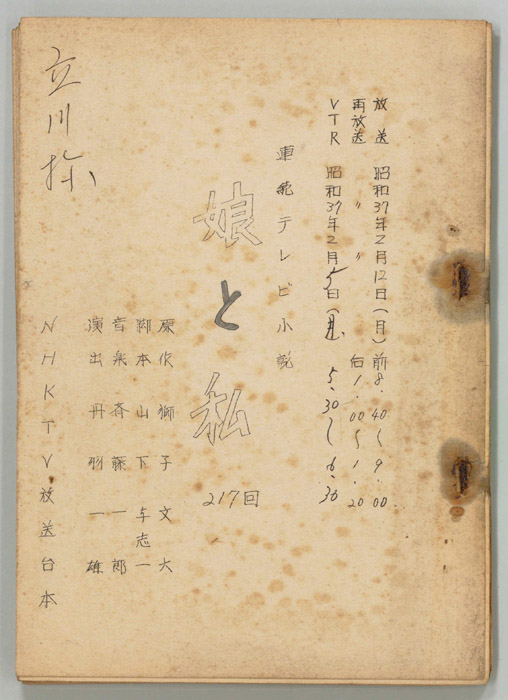 放送 昭和37年2月12日(月)前8.40〜9.00
再放送 〃 〃 后1.00〜1.20
VTR 昭和37年2月5日(月)5.30〜6.30
連続テレビ小説
娘と私
217回
原作 獅子文六
脚本 山下与志一
音楽 斉藤一郎
演出 丹羽一雄
NHKTV放送台本
立川様